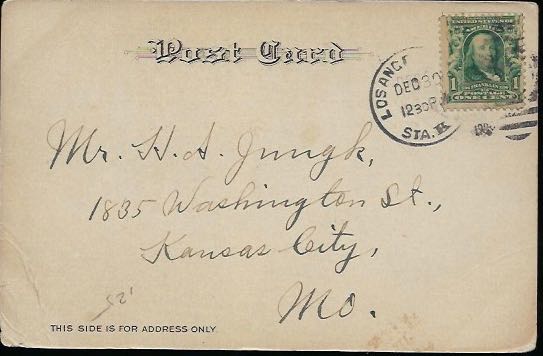 Post Card
UNITED STATES OF AMERICA
FRANKLIN
POSTAGE
1 ONE CENT 1
LOS ANGE
DEC 30
1230P
STA. K
Mr. H. A. Jungk,
1835 Washington St.,
Kansas City,
Mo.
THIS SIDE IS FOR ADDRESS ONLY